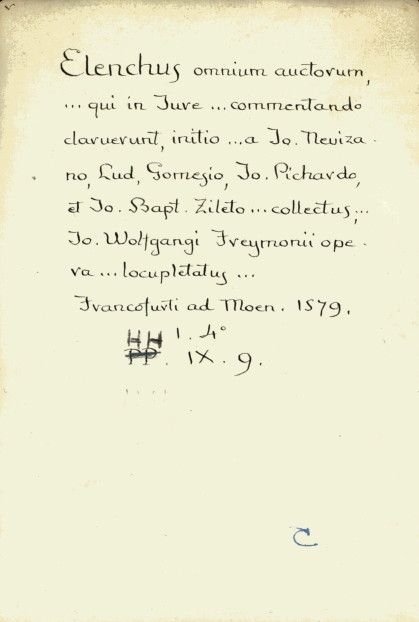 Elenchus omnium auctorum,
... qui in Jure ... commentando
claruerunt, initio ... a Jo. Neviza-
no, Lud, Gomesio, Jo. Pichardo,
et Jo. Bapt. Zileto ... collectus, ...
Jo. Wolfgangi Freymonii ope-
ra ... locupletatus ...
Francofurti ad Moen. 1579.
HH 1. 4°
PP. IX. 9.
C